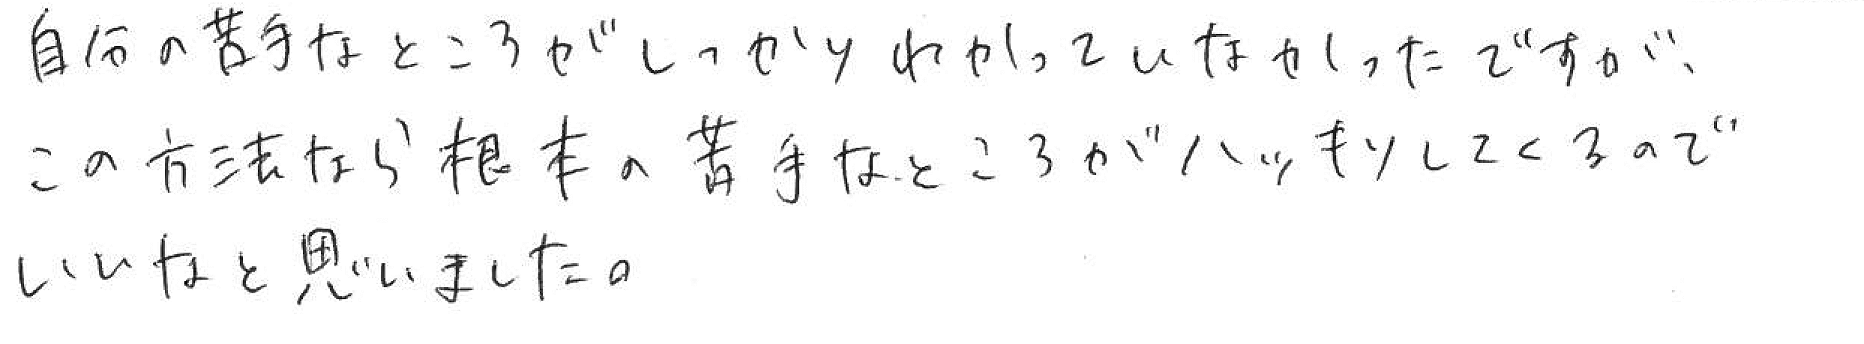 自分の苦手なところがしっかりわかっていなかったですが、
この方法なら根本の苦手なところがハッキリしてくるので
いいなと思いました。